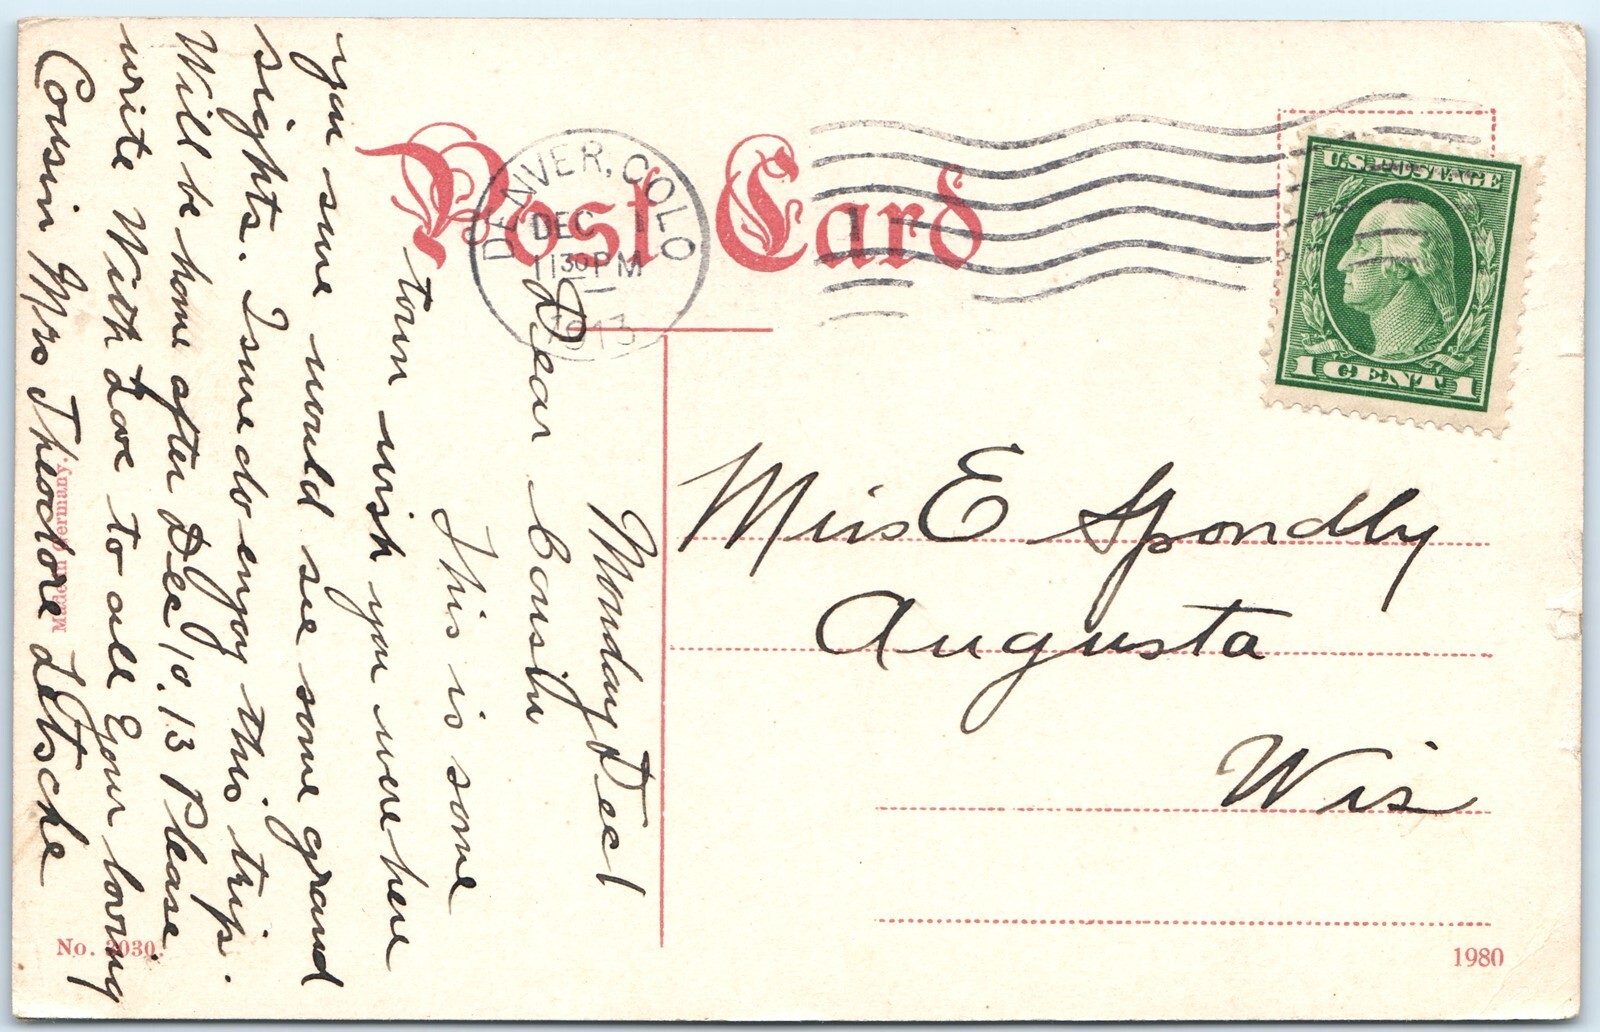 Post Card
DENVER, COLO
DEC 1
1130 PM
1913
1
U.S. POSTAGE
1 CENT 1
Miss E Spondly
Augusta
Wis
Monday Dec 1
Dear Cousin
This is some
town wish you were here
you sure would see some grand
sights. I sure do enjoy this trip.
Will be home after Dec 10, 13 Please
write With Love to all Your loving
Cousin Mrs Theodore Letsche
Made in Germany.
No. 2030
1980